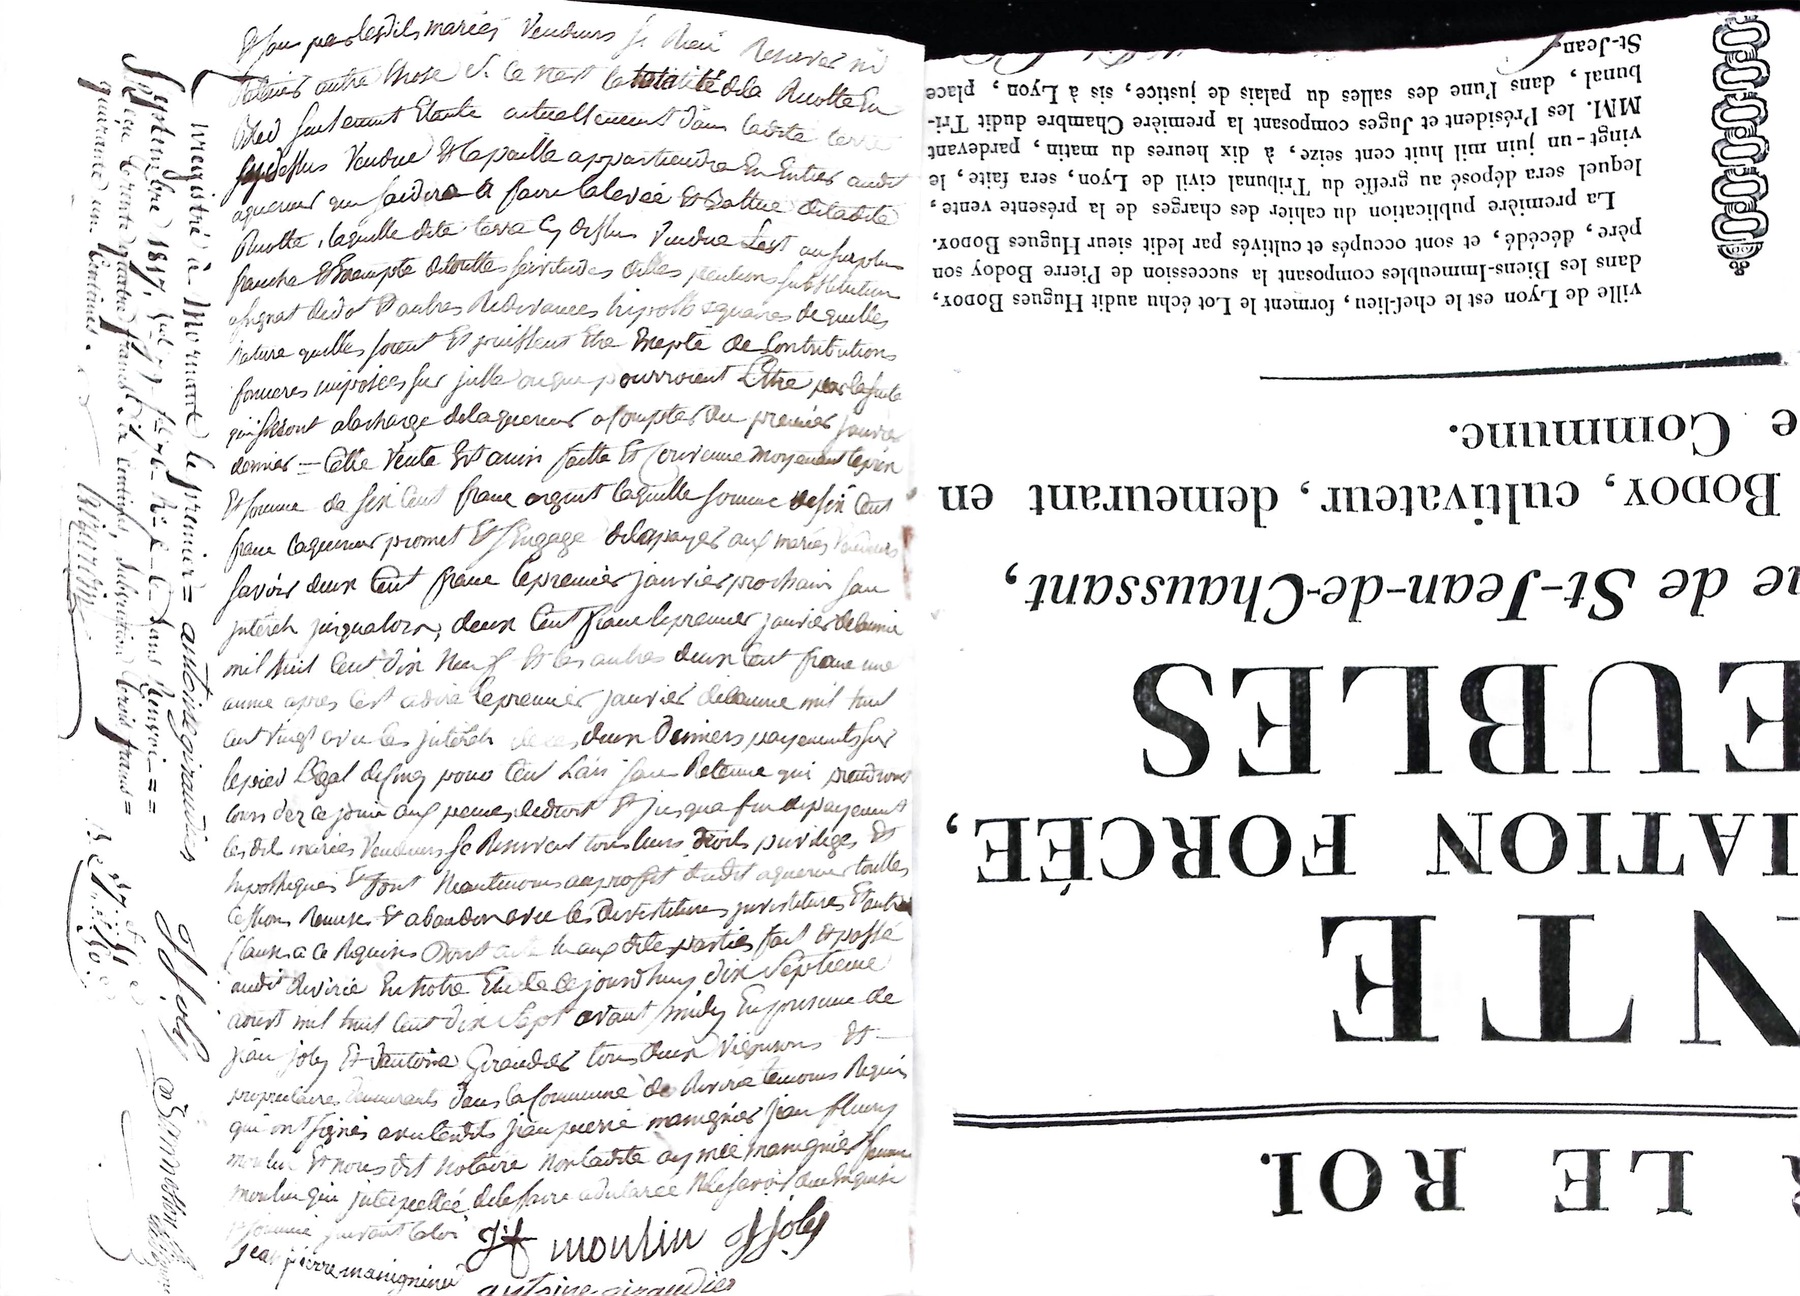 Et sans par lesdits mariés Vendeurs se Rien Reserver ni
Retenir autre Chose si ce n'est la totalité de la Recolte En
Bled seulement Etante actuellement dans ladite terre
sus Vendue Et la paille appartiendra En Entier audit
aquereur qui faire la levée Et Battue de ladite
Recolte, laquelle dite terre Cy dessus Vendue Est au surplus
franche Et Exempte de touttes servitudes substitution
Et autres Redevances hipothequaires de quelles
Nature quelles soient Et puissent Etre Exepté de Contributions
foncieres imposées sur jcelle ou qui pourroient Etre par la suite
qui seront a la charge de laquereur a Compter du premier janvier
dernier = Cette Vente Est ainsi faitte Et Convenue moyenant le prix
Et somme de six Cent franc argent laquelle somme de six Cent
franc laquereur promet Et s'Engage de la payer aux mariés Vendeurs
savoir deux Cent franc le premier janvier prochain sans
jnterêt jusqualors, deux Cent franc le premier janvier de lannée
mil huit Cent dix Neuf Et les autres deux Cent franc une
année apres C'est a dire le premier janvier de lannée mil huit
cent vingt avec les jnterêt de ces deux Derniers payements sur
le pied Légal de Cinq pour Cent L'an sans Retenue qui prendront
cours dez ce jour aux peines de droit Et jusqua fin de payement
les dits mariés Vendeurs se Reservent tous leurs droits priviléges Et
hypotheques Et font Neantmoins au profit dudit aquereur touttes
Cessions Remises Et abandon avec les Devestitures jnvestitures Et autres
Clauses a ce Requises Dont acte aux dites parties fait Et passé
audit Riviríe En notre Etude Ce jourdhuy dix Septieme
aoust mil huit Cent dix Sept avant midy En presence de
jean joly Et d'antoine Giraudier tous deux Vignerons Et
proprietaires demeurants dans la Commune de Rivirie temoins Requis
qui ont signés avec lesdits jean pierre manignier jean fleury
moulin Et nous dit Notaire Non ladite aymée manignier femme
moulin qui jnterpellée de le faire a declarée Ne savoir de ce Enquise
Et sommée suivant la loi
jean pierre manignier J f moulin J joly
antoine giraudier
Enregistré à Mornant le premier =
Septembre 1817,
Reçu trente quatre francs dix Centimes, Subvention trois francs =
quarante un Centimes.
antoine giraudier
J joly
R LE ROI.
NTE
IATION FORCÉE,
EUBLES
ne de St-Jean-de-Chaussant,
BODOY, cultivateur, demeurant en
e Commune.
ville de Lyon est le chef-lieu, forment le Lot échu audit Hugues BODOY,
dans les Biens-Immeubles composant la succession de Pierre Bodoy son
père, décédé, et sont occupés et cultivés par ledit sieur Hugues BODOY.
La première publication du cahier des charges de la présente vente,
lequel sera déposé au greffe du Tribunal civil de Lyon, sera faite, le
vingt-un juin mil huit cent seize, à dix heures du matin, pardevant
MM. les Président et Juges composant la première Chambre dudit Tri-
bunal, dans l'une des salles du palais de justice, sis à Lyon, place
St-Jean.